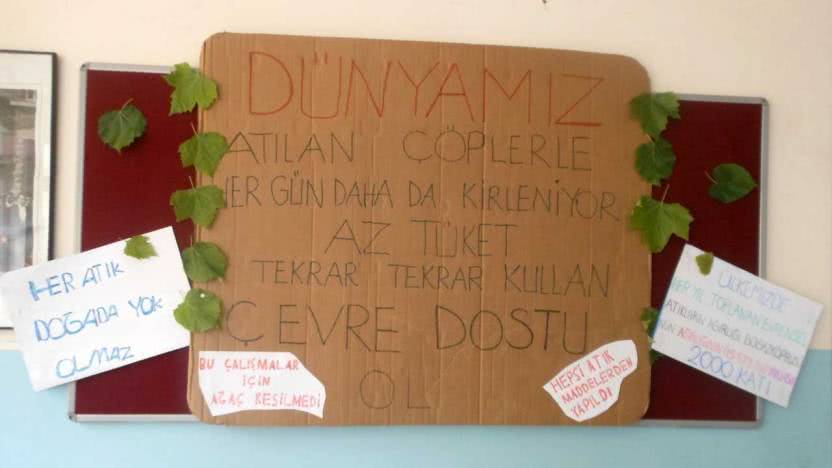 DÜNYAMIZ
ATILAN ÇÖPLERLE
HER GÜN DAHA DA KİRLENİYOR
AZ TÜKET
TEKRAR TEKRAR KULLAN
ÇEVRE DOSTU
OL
HER ATIK
DOĞADA YOK
OLMAZ
BU ÇALIŞMALAR
İÇİN
AĞAÇ KESİLMEDİ
HEPSİ ATIK
MADDELERDEN
YAPILDI
ÜLKEMİZDE
HER YIL TOPLANAN EVSEL
ATIKLARIN AĞIRLIĞI
2000 KATI